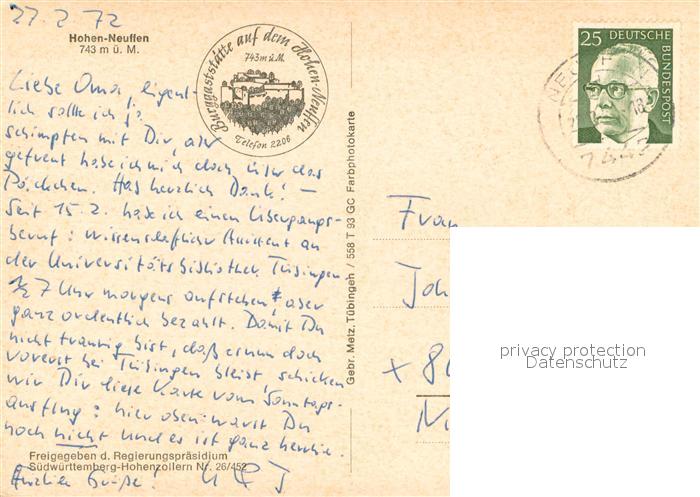 27.2.72
Hohen-Neuffen
743 m ü. M.
Burggaststätte auf dem Hohen-Neuffen
743m ü.M.
Telefon 2206
25 DEUTSCHE BUNDESPOST
7443
Liebe Oma, eigent-
lich sollte ich ja
schimpfen mit Dir, aber
gefreut habe ich mich doch über das
Päckchen. Hab herzlich Dank! –
Seit 15.2. habe ich einen Übergangs-
beruf: wissenschaftlicher Assistent an
der Universitätsbibliothek Tübingen.
½ 7 Uhr morgens aufstehen, aber
ganz ordentlich bezahlt. Damit Du
nicht traurig bist, daß es nun doch
vorerst bei Tübingen bleibt, schicken
wir Dir diese Karte vom Sonntags-
ausflug: hier oben warst Du
noch nicht und es ist ganz herrlich.
Freigegeben d. Regierungspräsidium
Südwürttemberg-Hohenzollern Nr. 26/452
Herzliche Grüße!
Gebr. Metz, Tübingen / 558 T 93 GC Farbphotokarte
Frau
Joh
privacy protection
Datenschutz